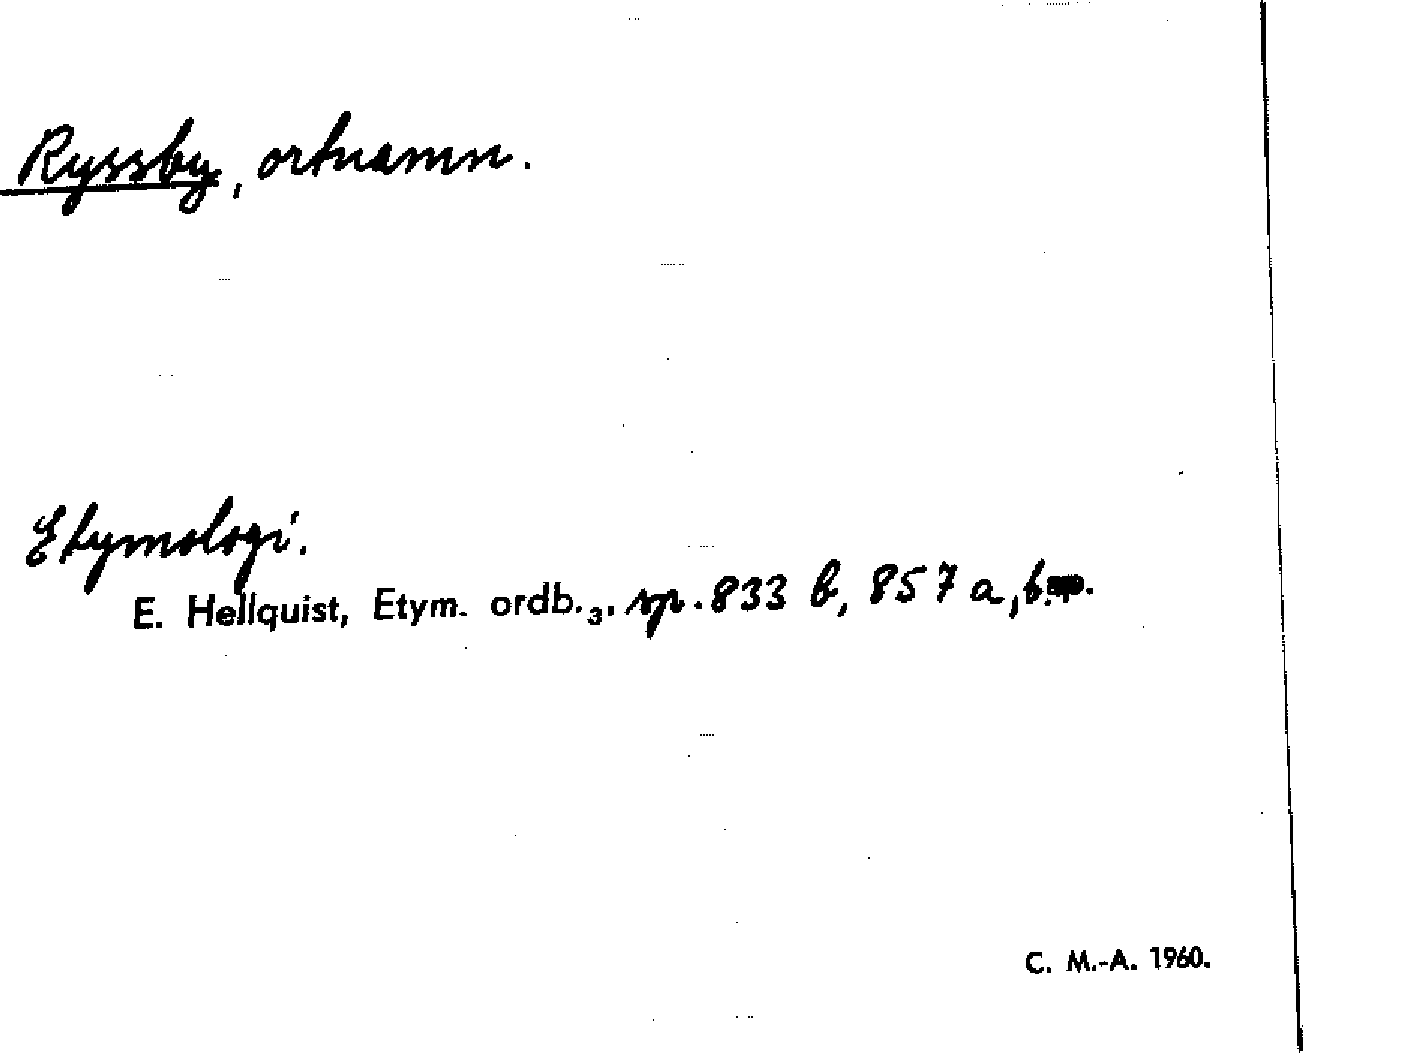 Ryssby, ortnamn.
Etymologi.
E. Hellquist, Etym. ordb.₃. sp. 833 b, 857 a, b.
C. M.-A. 1960.